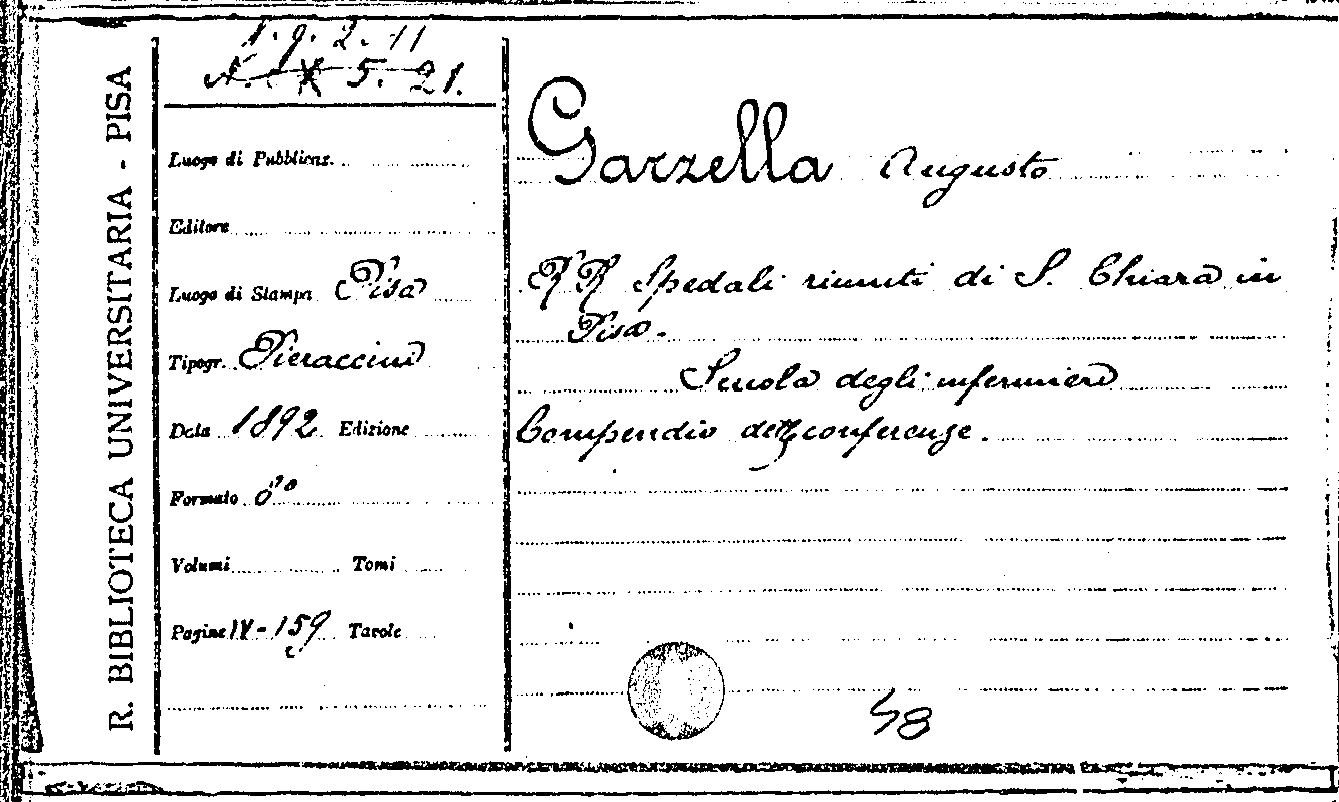 R. BIBLIOTECA UNIVERSITARIA - PISA
1. g. 2. 11
5. 21.
Luogo di Pubblicaz.
Editore
Luogo di Stampa Pisa
Tipogr. Pieraccini
Data 1892 Edizione
Formato 8°
Volumi Tomi
Pagine IV-159 Tavole
Garzella Augusto
RR Spedali riuniti di S. Chiara in
Pisa.
Scuola degli infermieri
Compendio delle conferenze.
48